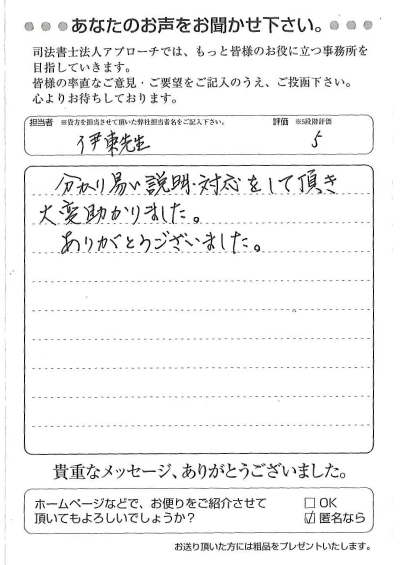 あなたのお声をお聞かせ下さい。
司法書士法人アプローチでは、もっと皆様のお役に立つ事務所を
目指していきます。
皆様の率直なご意見・ご要望をご記入のうえ、ご投函下さい。
心よりお待ちしております。
担当者 ※貴方を担当させて頂いた弊社担当者名をご記入下さい。 評価 ※5段階評価
伊東先生 5
分かり易い説明・対応をして頂き
大変助かりました。
ありがとうございました。
貴重なメッセージ、ありがとうございました。
ホームページなどで、お便りをご紹介させて
頂いてもよろしいでしょうか？
□ OK
☑ 匿名なら
お送り頂いた方には粗品をプレゼントいたします。